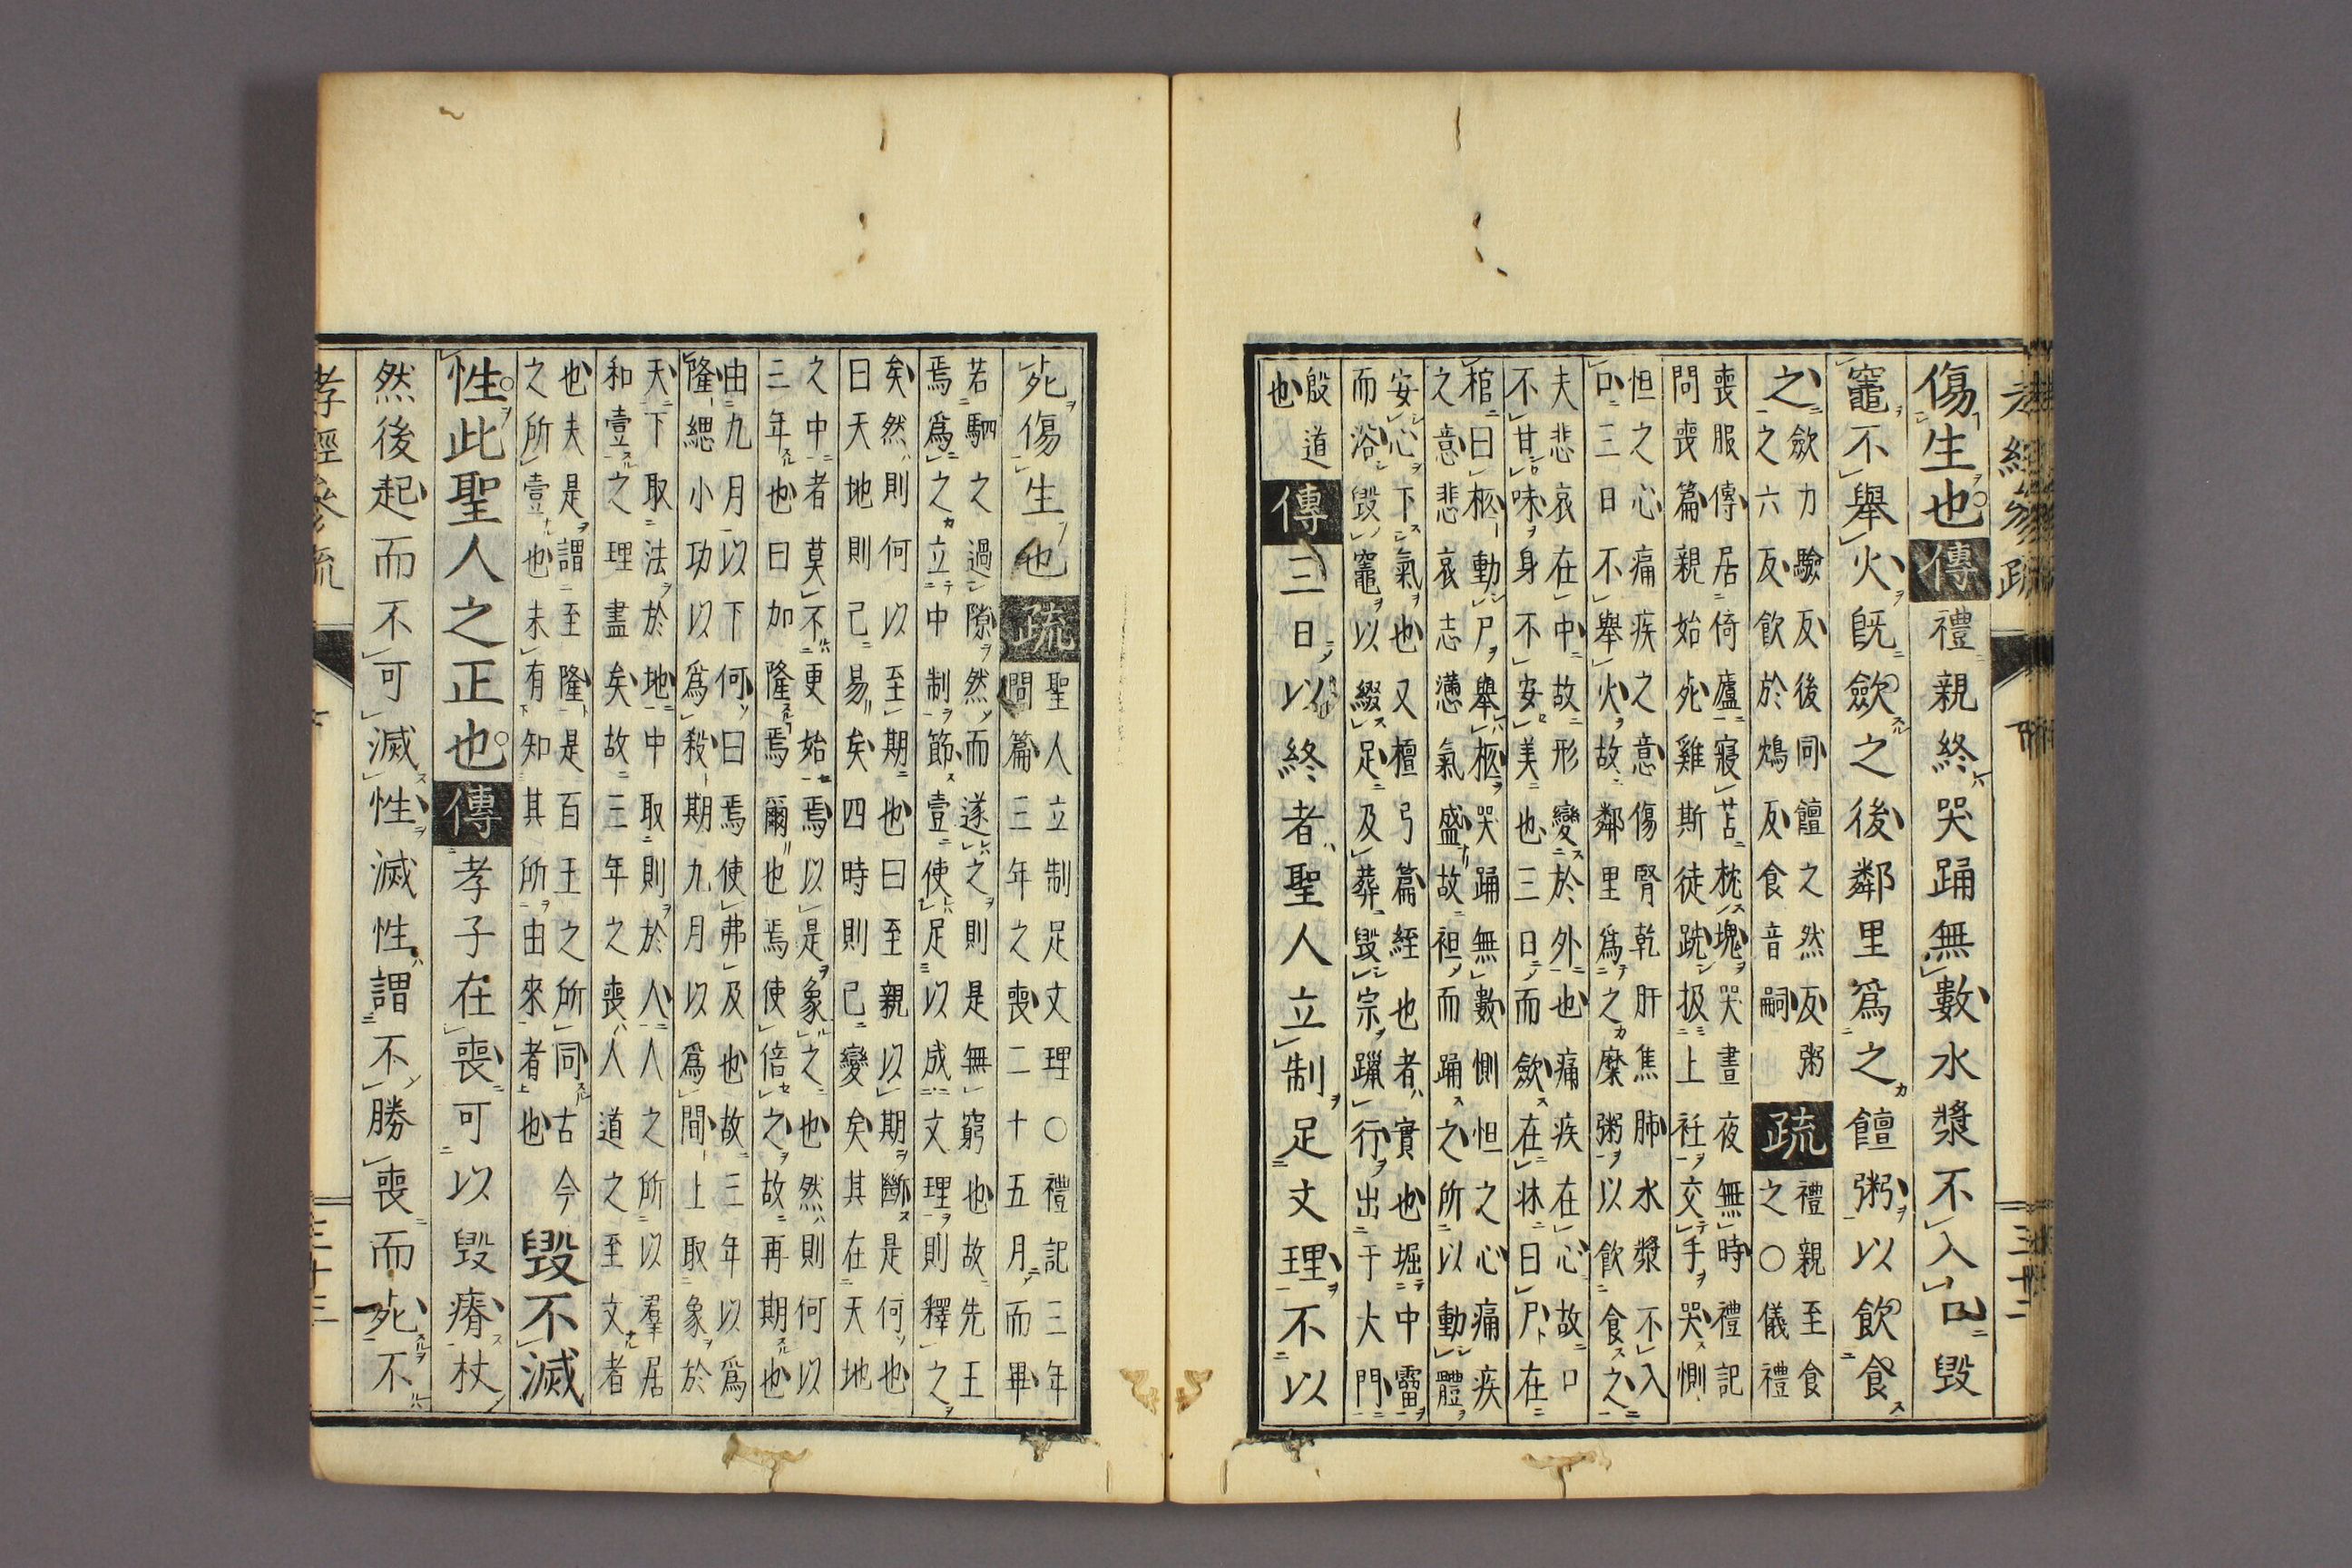 傷生也傳禮親終哭踊無數水漿不入口毀
竈不舉火既歛之後鄰里爲之饘粥以飲食
之歛力驗反後同饘之然反粥
之六反飲於鴆反食音嗣
疏禮親至食
之○儀禮
喪服傳居倚廬寢苫枕塊哭晝夜無時禮記
問喪篇親始死雞斯徒跣扱上衽交手哭惻
怛之心痛疾之意傷腎乾肝焦肺水漿不入
口三日不舉火故鄰里爲之糜粥以飲食之
夫悲哀在中故形變於外也痛疾在心故口
不甘味身不安美也三日而歛在牀曰尸在
棺曰柩動尸舉柩哭踊無數惻怛之心痛疾
之意悲哀志懣氣盛故袒而踊之所以動體
安心下氣也又檀弓篇絰也者實也堀中霤
而浴毀竈以綴足及葬毀宗躐行出于大門
殷道
也
傳三日以終者聖人立制足文理不以
死傷生也疏聖人立制足文理○禮記三年
問篇三年之喪二十五月而畢
若駟之過隙然而遂之則是無窮也故先王
焉爲之立中制節壹使足以成文理則釋之
矣然則何以至期也曰至親以期斷是何也
曰天地則已易矣四時則已變矣其在天地
之中者莫不更始焉以是象之也然則何以
三年也曰加隆焉爾也焉使倍之故再期也
由九月以下何曰焉使弗及也故三年以爲
隆緦小功以爲殺期九月以爲間上取象於
天下取法於地中取則於人人之所以羣居
和壹之理盡矣故三年之喪人道之至文者
也夫是謂至隆是百王之所同古今
之所壹也未有知其所由來者也
毀不滅
性此聖人之正也傳孝子在喪可以毀瘠杖
然後起而不可滅性滅性謂不勝喪而死不
孝經參疏 下 三十三